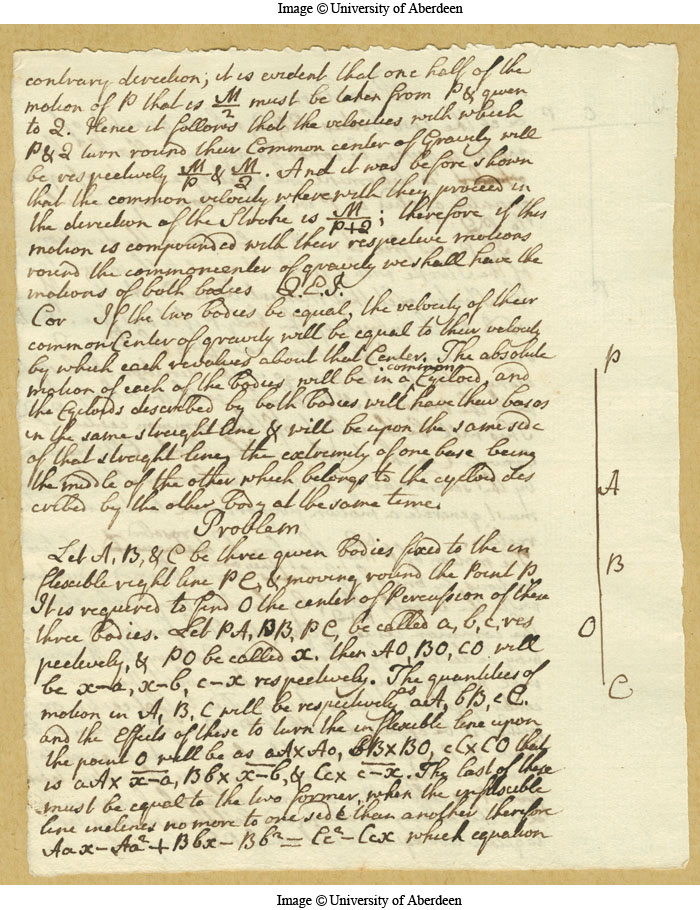 Image © University of Aberdeen
contrary direction; it is evident that one half of the
motion of P that is M/2 must be taken from P & given
to Q. Hence it follows that the velocities with which
P & Q turn round their Common center of Gravity will
be respectively M/P & M/Q. And it was before shown
that the common velocity wherewith they proceed in
the direction of the Stroke is M/P+Q; therefore if this
motion is compounded with their respective motions
round the common center of gravity we shall have the
motions of both bodies Q.E.I.
Cor If the two bodies be equal, the velocity of their
common Center of gravity will be equal to their velocity
by which each revolves about that Center. The absolute
motion of each of the bodies will be in a common Cycloid, and
the Cycloids described by both bodies will have their bases
in the same straight line & will be upon the same side
of that straight line, the extremity of one base being
the middle of the other which belongs to the cycloid des
cribed by the other body at the same time.
Problem
Let A, B, & C be three given bodies fixed to the in
flexible right line PC, & moving round the Point P
It is required to find O the center of Percussion of these
three bodies. Let PA, PB, PC, be called a, b, c, res
pectively, & PO be called x. then AO, BO, CO will
be x-a, x-b, c-x respectively. The quantities of
motion in A, B, C will be respectively as aA, bB, cC.
and the Effects of these to turn the inflexible line upon
the point O will be as aA×AO, bB×BO, cC×CO that
is aA× x-a, Bb× x-b, & Cc× c-x. The last of these
must be equal to the two former, when the inflexible
line inclines no more to one side than another therefore
Aax - Aa² + Bbx - Bb² = Cc² - Ccx which equation
P
A
B
O
C
Image © University of Aberdeen